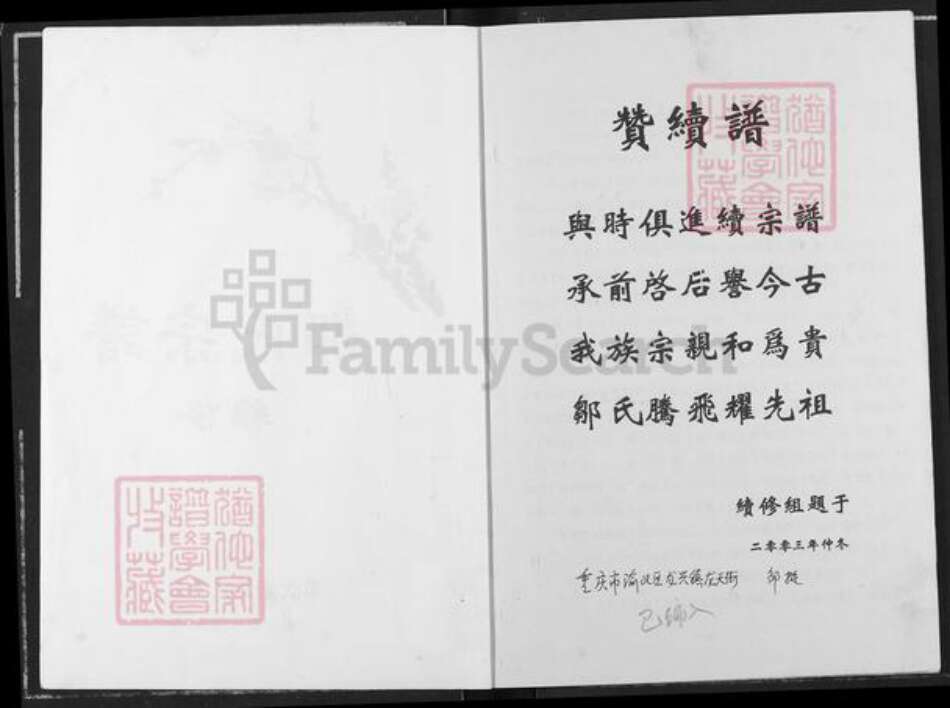 贊續譜
與時俱進續宗譜
承前啓后譽今古
我族宗親和爲貴
鄒氏騰飛耀先祖
續修組題于
二零零三年仲冬
重庆市渝北区
已编入
猶他家譜學會收藏
猶他家譜學會收藏
FamilySearch